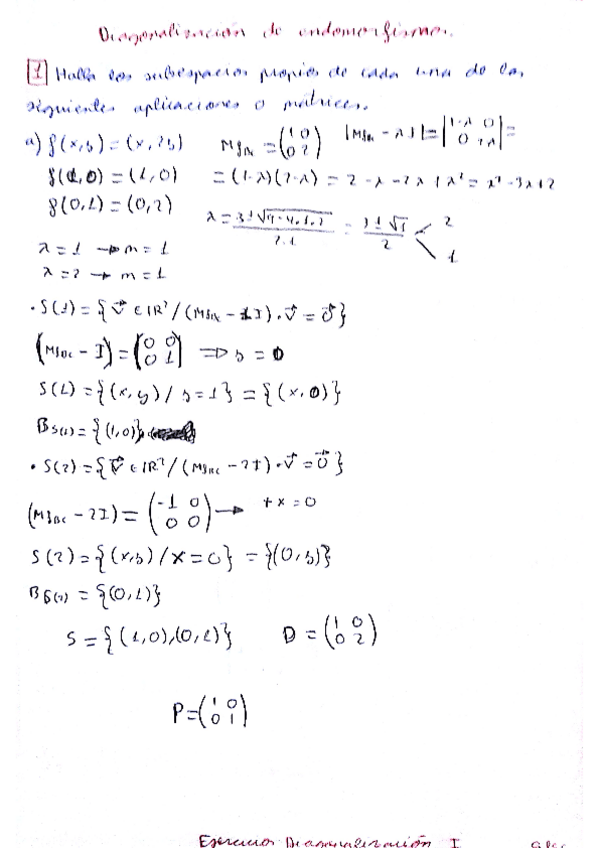 Diagonalización de endomorfismos.
1 Halla los subespacios propios de cada una de las
siguientes aplicaciones o matrices.
a) f(x,y) = (x, 2y)   M_{f_{BC}} = (1 0 / 0 2)   |M_{f_{BC}} - λI| = |1-λ 0 / 0 2-λ| =
f(1,0) = (1,0)   = (1-λ)(2-λ) = 2 - λ - 2λ + λ² = λ² - 3λ + 2
f(0,1) = (0,2)   λ = (3 ± √(9 - 4·1·2)) / (2·1) = (3 ± √1) / 2 < 2
1
λ = 1 → m = 1
λ = 2 → m = 1
· S(1) = {v⃗ ∈ ℝ² / (M_{f_{BC}} - 1I)·v⃗ = 0⃗}
(M_{f_{BC}} - I) = (0 0 / 0 1) ⇒ y = 0
S(1) = {(x,y) / y = 1} = {(x,0)}
B_{S(1)} = {(1,0)}
· S(2) = {v⃗ ∈ ℝ² / (M_{f_{BC}} - 2I)·v⃗ = 0⃗}
(M_{f_{BC}} - 2I) = (-1 0 / 0 0) → +x = 0
S(2) = {(x,y) / x = 0} = {(0,y)}
B_{S(2)} = {(0,1)}
S = {(1,0),(0,1)}   D = (1 0 / 0 2)
P = (1 0 / 0 1)
Ejercicios Diagonalización I